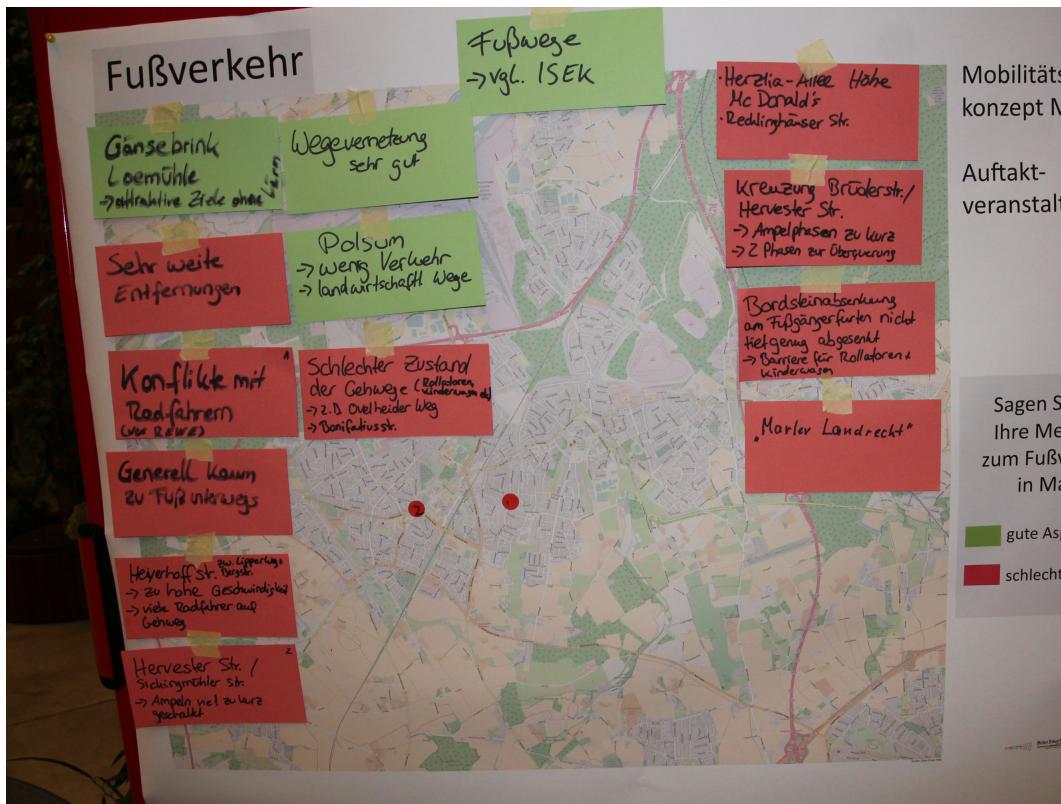 Fußverkehr
Fußwege
→ vgl. ISEK
Gänsebrink
Loemühle
→ attraktive Ziele ohne Lärm
Wegevernetzung
sehr gut
Sehr weite
Entfernungen
Polsum
→ wenig Verkehr
→ landwirtschaftl. Wege
Konflikte mit
Radfahrern
(vor REWE)
1
Schlechter Zustand
der Gehwege (Rollatoren,
Kinderwagen etc)
→ z.B Ovelheider Weg
→ Bonifatiusstr.
Generell kaum
zu Fuß unterwegs
Heyerhoffstr. zw. Lipperweg +
Bergstr.
→ zu hohe Geschwindigkeit
→ viele Radfahrer auf
Gehweg
Hervester Str. /
Sickingmühler Str.
→ Ampeln viel zu kurz
geschaltet
2
2
1
• Herzlia-Allee Höhe
Mc Donald's
• Recklinghäuser Str.
Kreuzung Brüderstr./
Hervester Str.
→ Ampelphasen zu kurz
→ 2 Phasen zur Überquerung
Bordsteinabsenkung
am Fußgängerfurten nicht
tief genug abgesenkt
→ Barriere für Rollatoren +
Kinderwagen
"Marler Landrecht"
Mobilitäts
konzept M
Auftakt-
veranstalt
Sagen S
Ihre Me
zum Fußv
in Ma
gute As
schlecht